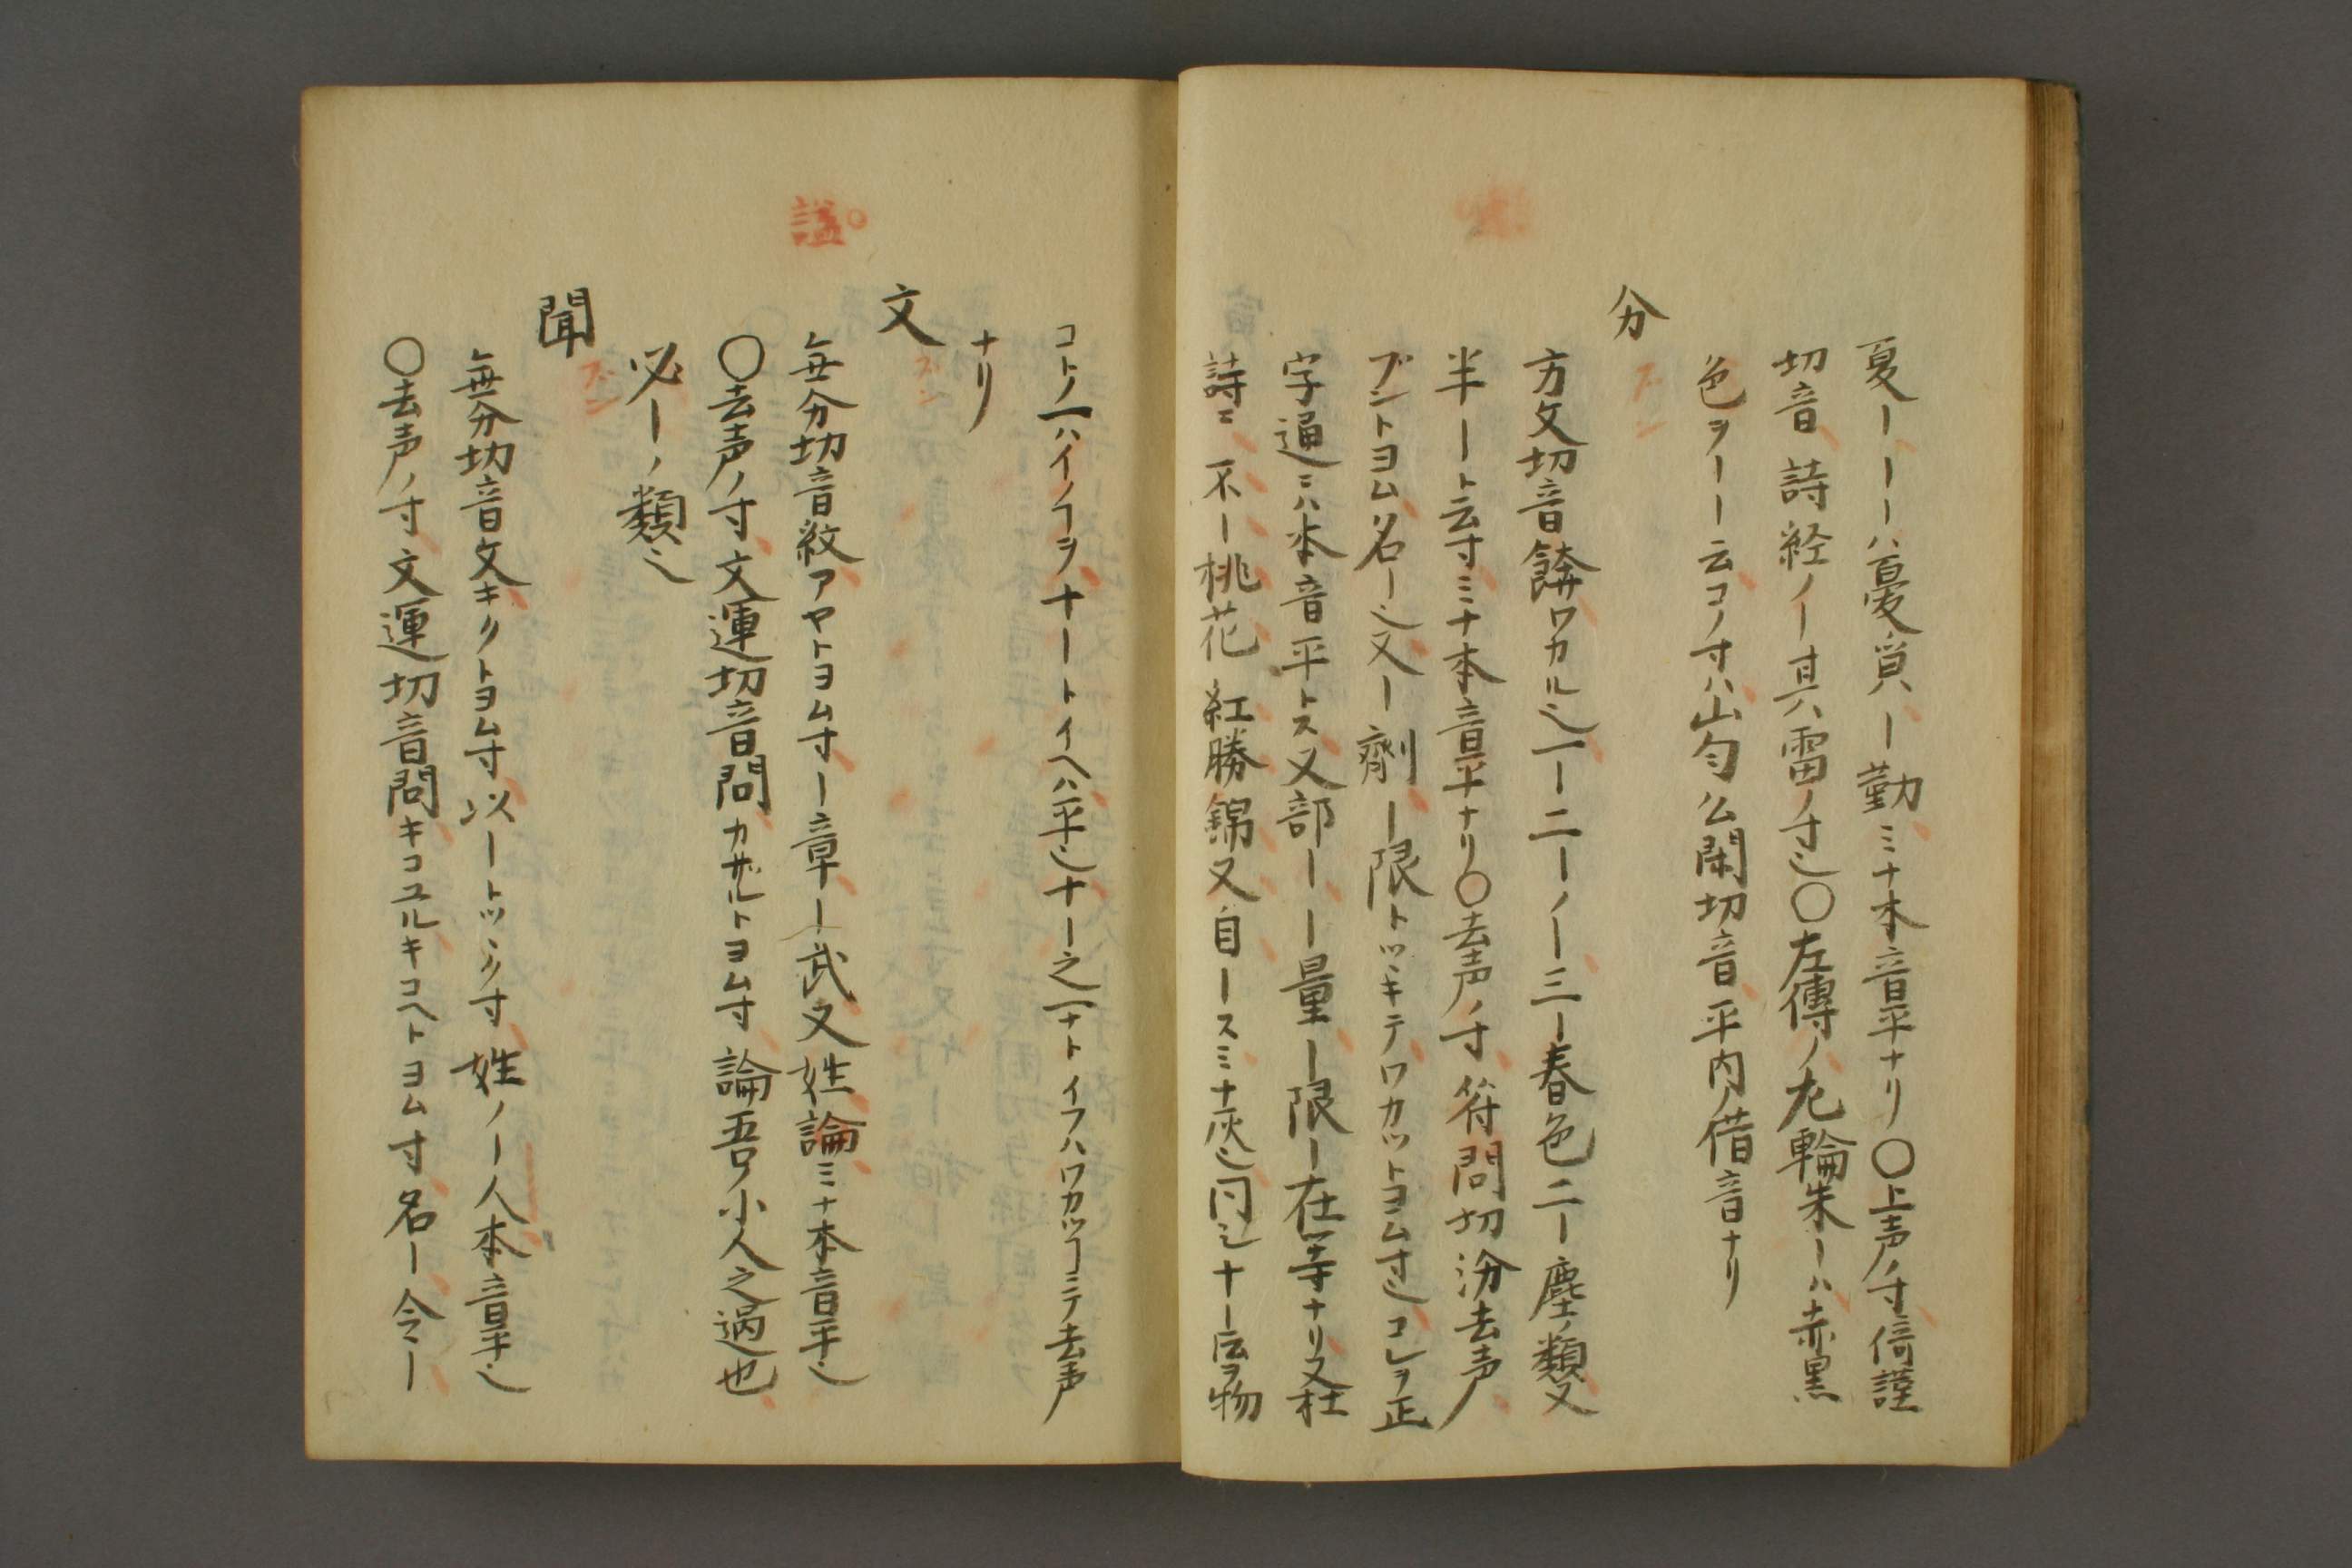 夏ーーーハ憂皃ー勤ミナ本音平ナリ〇上声ノ寸倚謹
切音詩経ノー其ハ雷ノ寸也〇左傳ノ左輪朱ーハ赤黒
色ヲーー云コノ寸ハ山勻幺閑切音平内ノ借音ナリ
分
ブン
方文切音餴ワカル也一ー二ーノー三ー春色二ー塵ノ類又
半ート云寸ミナ本音平ナリ〇去声ノ寸符問切汾去声
ブントヨム名ー也又ー劑ー限トツヾキテワカツトヨム寸也コレヲ正
字通ニハ本音平トス又部ーー量ー限ー在等ナリ又杜
詩ニ不ー桃花紅勝錦又自ースミナ仄也同シナー伝ヲ物
コトノ一ハイノヿヲナートイヘハ平也ナー之一ナトイフハワカツヿニテ去声
ナリ
謚〇
文
ブン
無分切音紋アヤトヨム寸ー章ー武文姓論ミナ本音平也
〇去声ノ寸文運切音問カザルトヨム寸論吾ノ小人之過也
必ーノ類也
聞
ブン
無分切音文キクトヨム寸以ートツヾク寸姓ノー人本音平也
〇去声ノ寸文運切音問キコユルキコヘトヨム寸名ー令ー